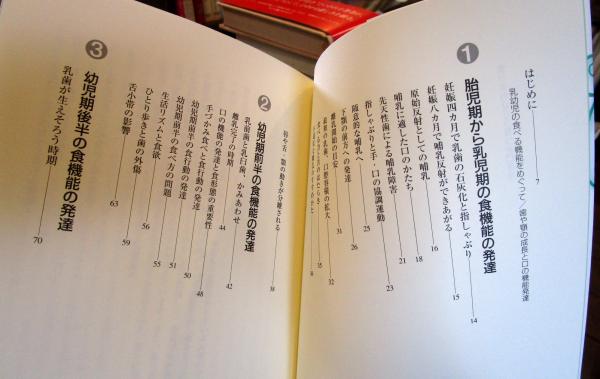 はじめに 7
乳幼児の食べる機能をめぐって／歯や顎の成長と口の機能発達
1 胎児期から乳児期の食機能の発達
妊娠四カ月で乳歯の石灰化と指しゃぶり 14
妊娠八カ月で哺乳反射ができあがる 15
原始反射としての哺乳 16
哺乳に適した口のかたち 18
先天性歯による哺乳障害 21
指しゃぶりと手・口の協調運動 23
随意的な哺乳へ 25
下顎の前方への発達 26
離乳開始の目安 31
最初の乳歯、口腔容積の拡大 32
35
唇や舌、顎の動きが分離される 38
2 幼児期前半の食機能の発達
乳前歯と乳臼歯、かみあわせ 42
離乳完了の時期 44
口の機能の発達と食形態の重要性
手づかみ食べと食行動の発達 48
幼児期前半の食行動の発達 50
幼児期前半の食べ方の問題 51
生活リズムと食欲 55
ひとり歩きと歯の外傷 56
舌小帯の影響 59
63
3 幼児期後半の食機能の発達
乳歯が生えそろう時期 70